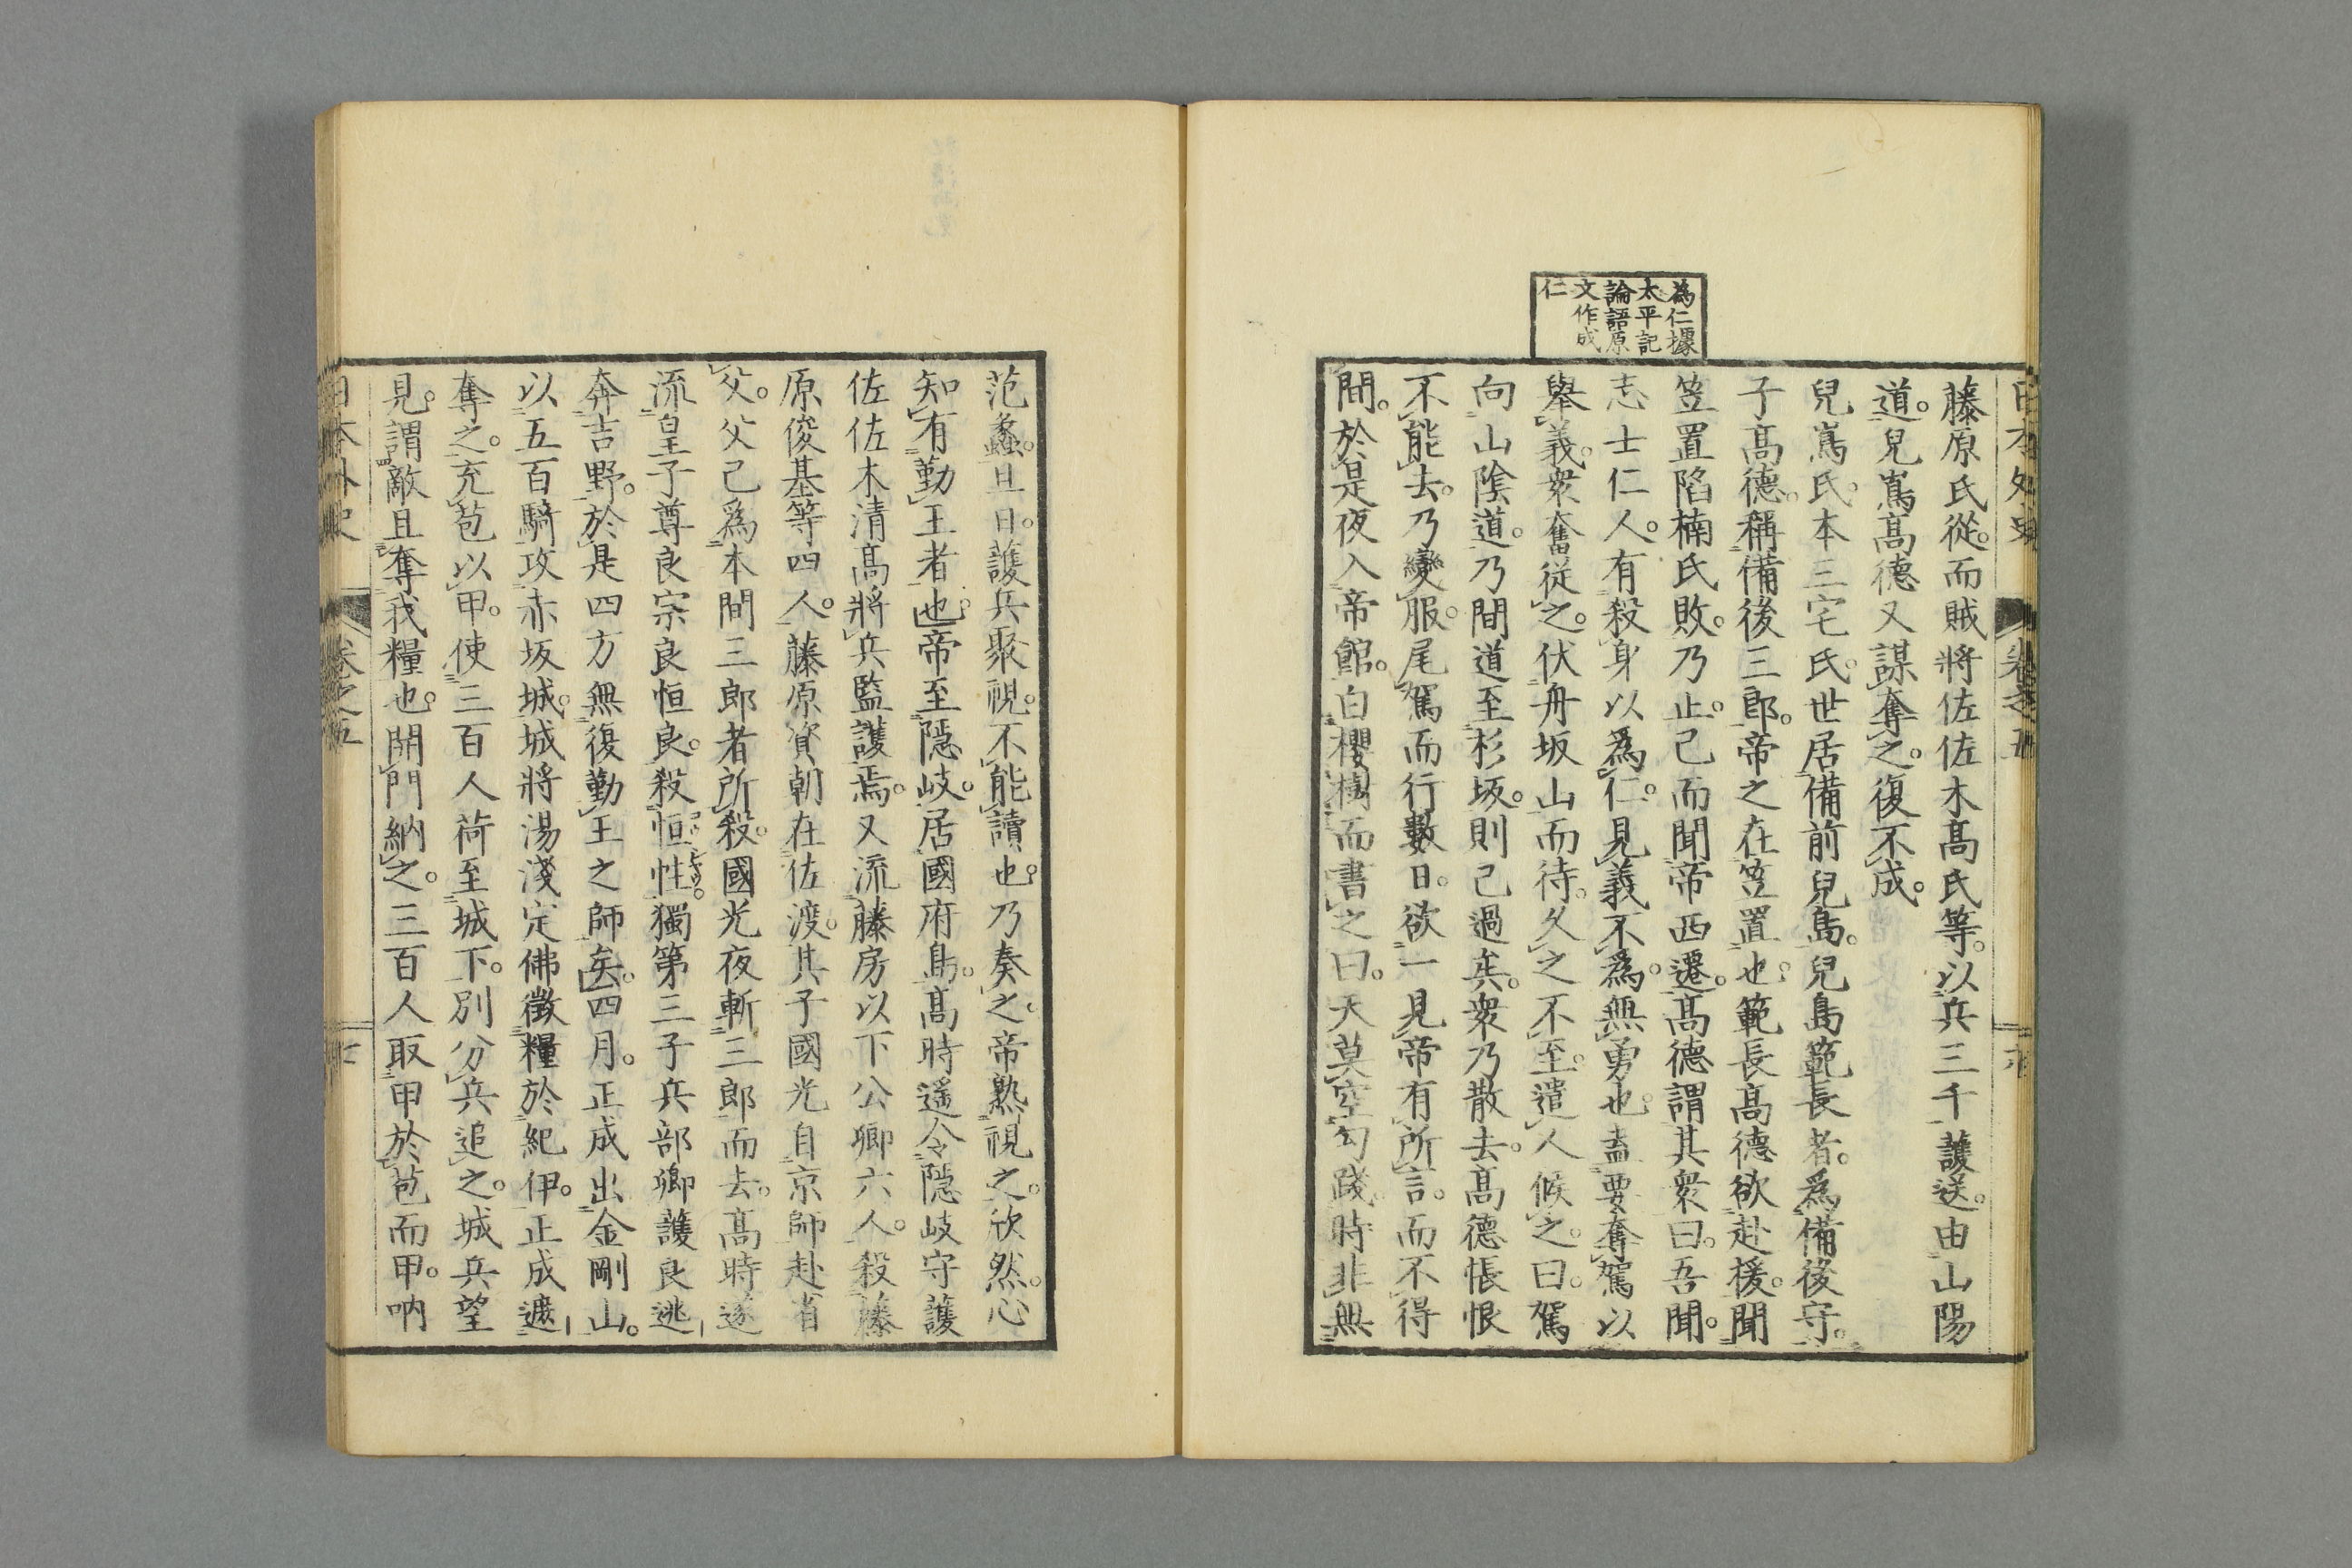 日本外史 卷之五
爲仁據
太平記
論語原
文作成
仁
藤原氏從。而賊將佐佐木高氏等。以兵三千護送。由山陽
道。兒嶌高德又謀奪之。復不成。
兒嶌氏。本三宅氏。世居備前兒島。兒島範長者。爲備後守。
子高德。稱備後三郎。帝之在笠置也。範長高德欲赴援。聞
笠置陷楠氏敗。乃止。己而聞帝西遷。高德謂其衆曰。吾聞。
志士仁人。有殺身以爲仁。見義不爲。無勇也。盍要奪駕以
擧義。衆奮從之。伏舟坂山而待。久之不至。遣人候之。曰。駕
向山陰道。乃間道至杉坂。則己過矣。衆乃散去。高德悵恨
不能去。乃變服。尾駕而行數日。欲一見帝有所言。而不得
間。於是夜入帝館。白櫻樹而書之曰。天莫空勾踐。時非無
范蠡。旦日。護兵聚視。不能讀也。乃奏之。帝熟視之。欣然。心
知有勤王者也。帝至隱岐。居國府島。高時遥令隱岐守護
佐佐木清高將兵監護焉。又流藤房以下公卿六人。殺藤
原俊基等四人。藤原資朝在佐渡。其子國光自京師赴省
父。父己爲本間三郎者所殺。國光夜斬三郎而去。高時遂
流皇子尊良宗良恒良。殺恒性。獨第三子兵部卿護良逃
奔吉野。於是四方無復勤王之師矣。四月。正成出金剛山。
以五百騎攻赤坂城。城將湯淺定佛徵糧於紀伊。正成遮
奪之。充苞以甲。使三百人荷至城下。別分兵追之。城兵望
見。謂敵且奪我糧也。開門納之。三百人取甲於苞而甲。吶
日本外史 卷之五